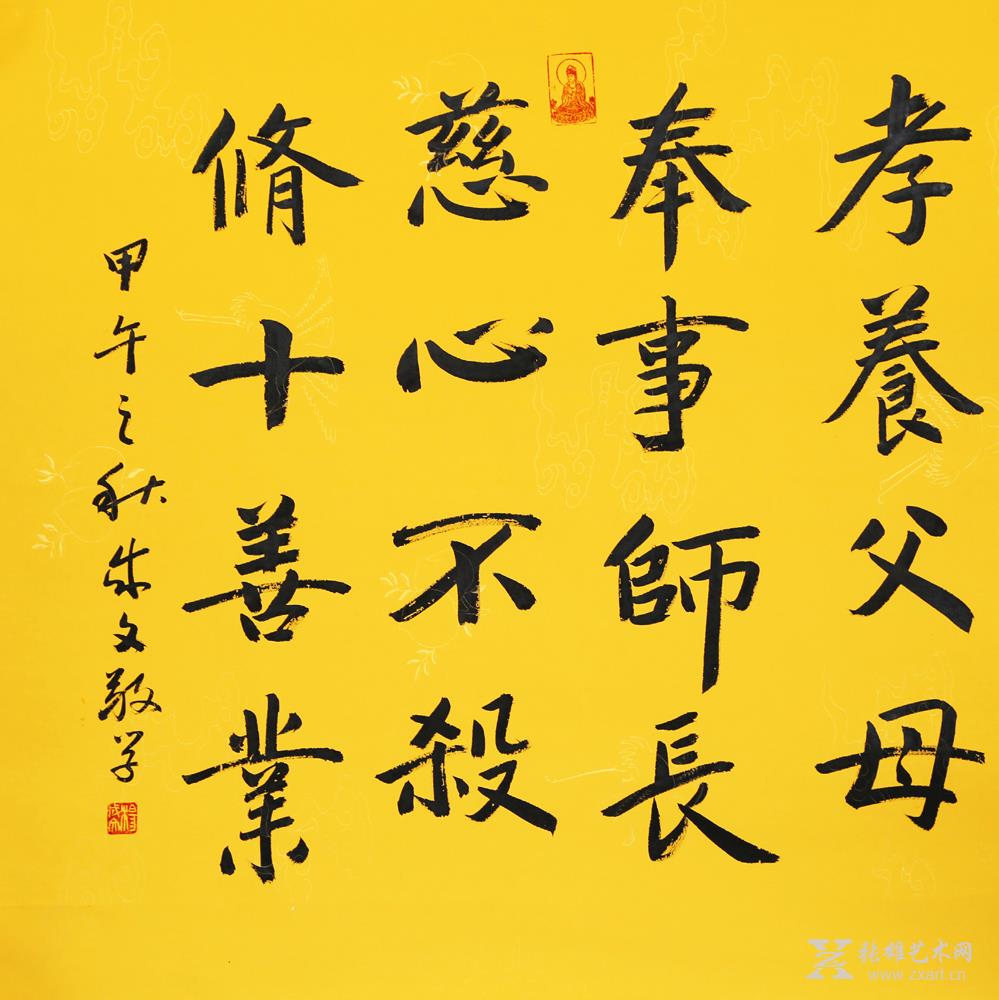 孝養父母
奉事師長
慈心不殺
脩十善業
甲午之秋成文敬學
张雄艺术网
www.zxart.cn